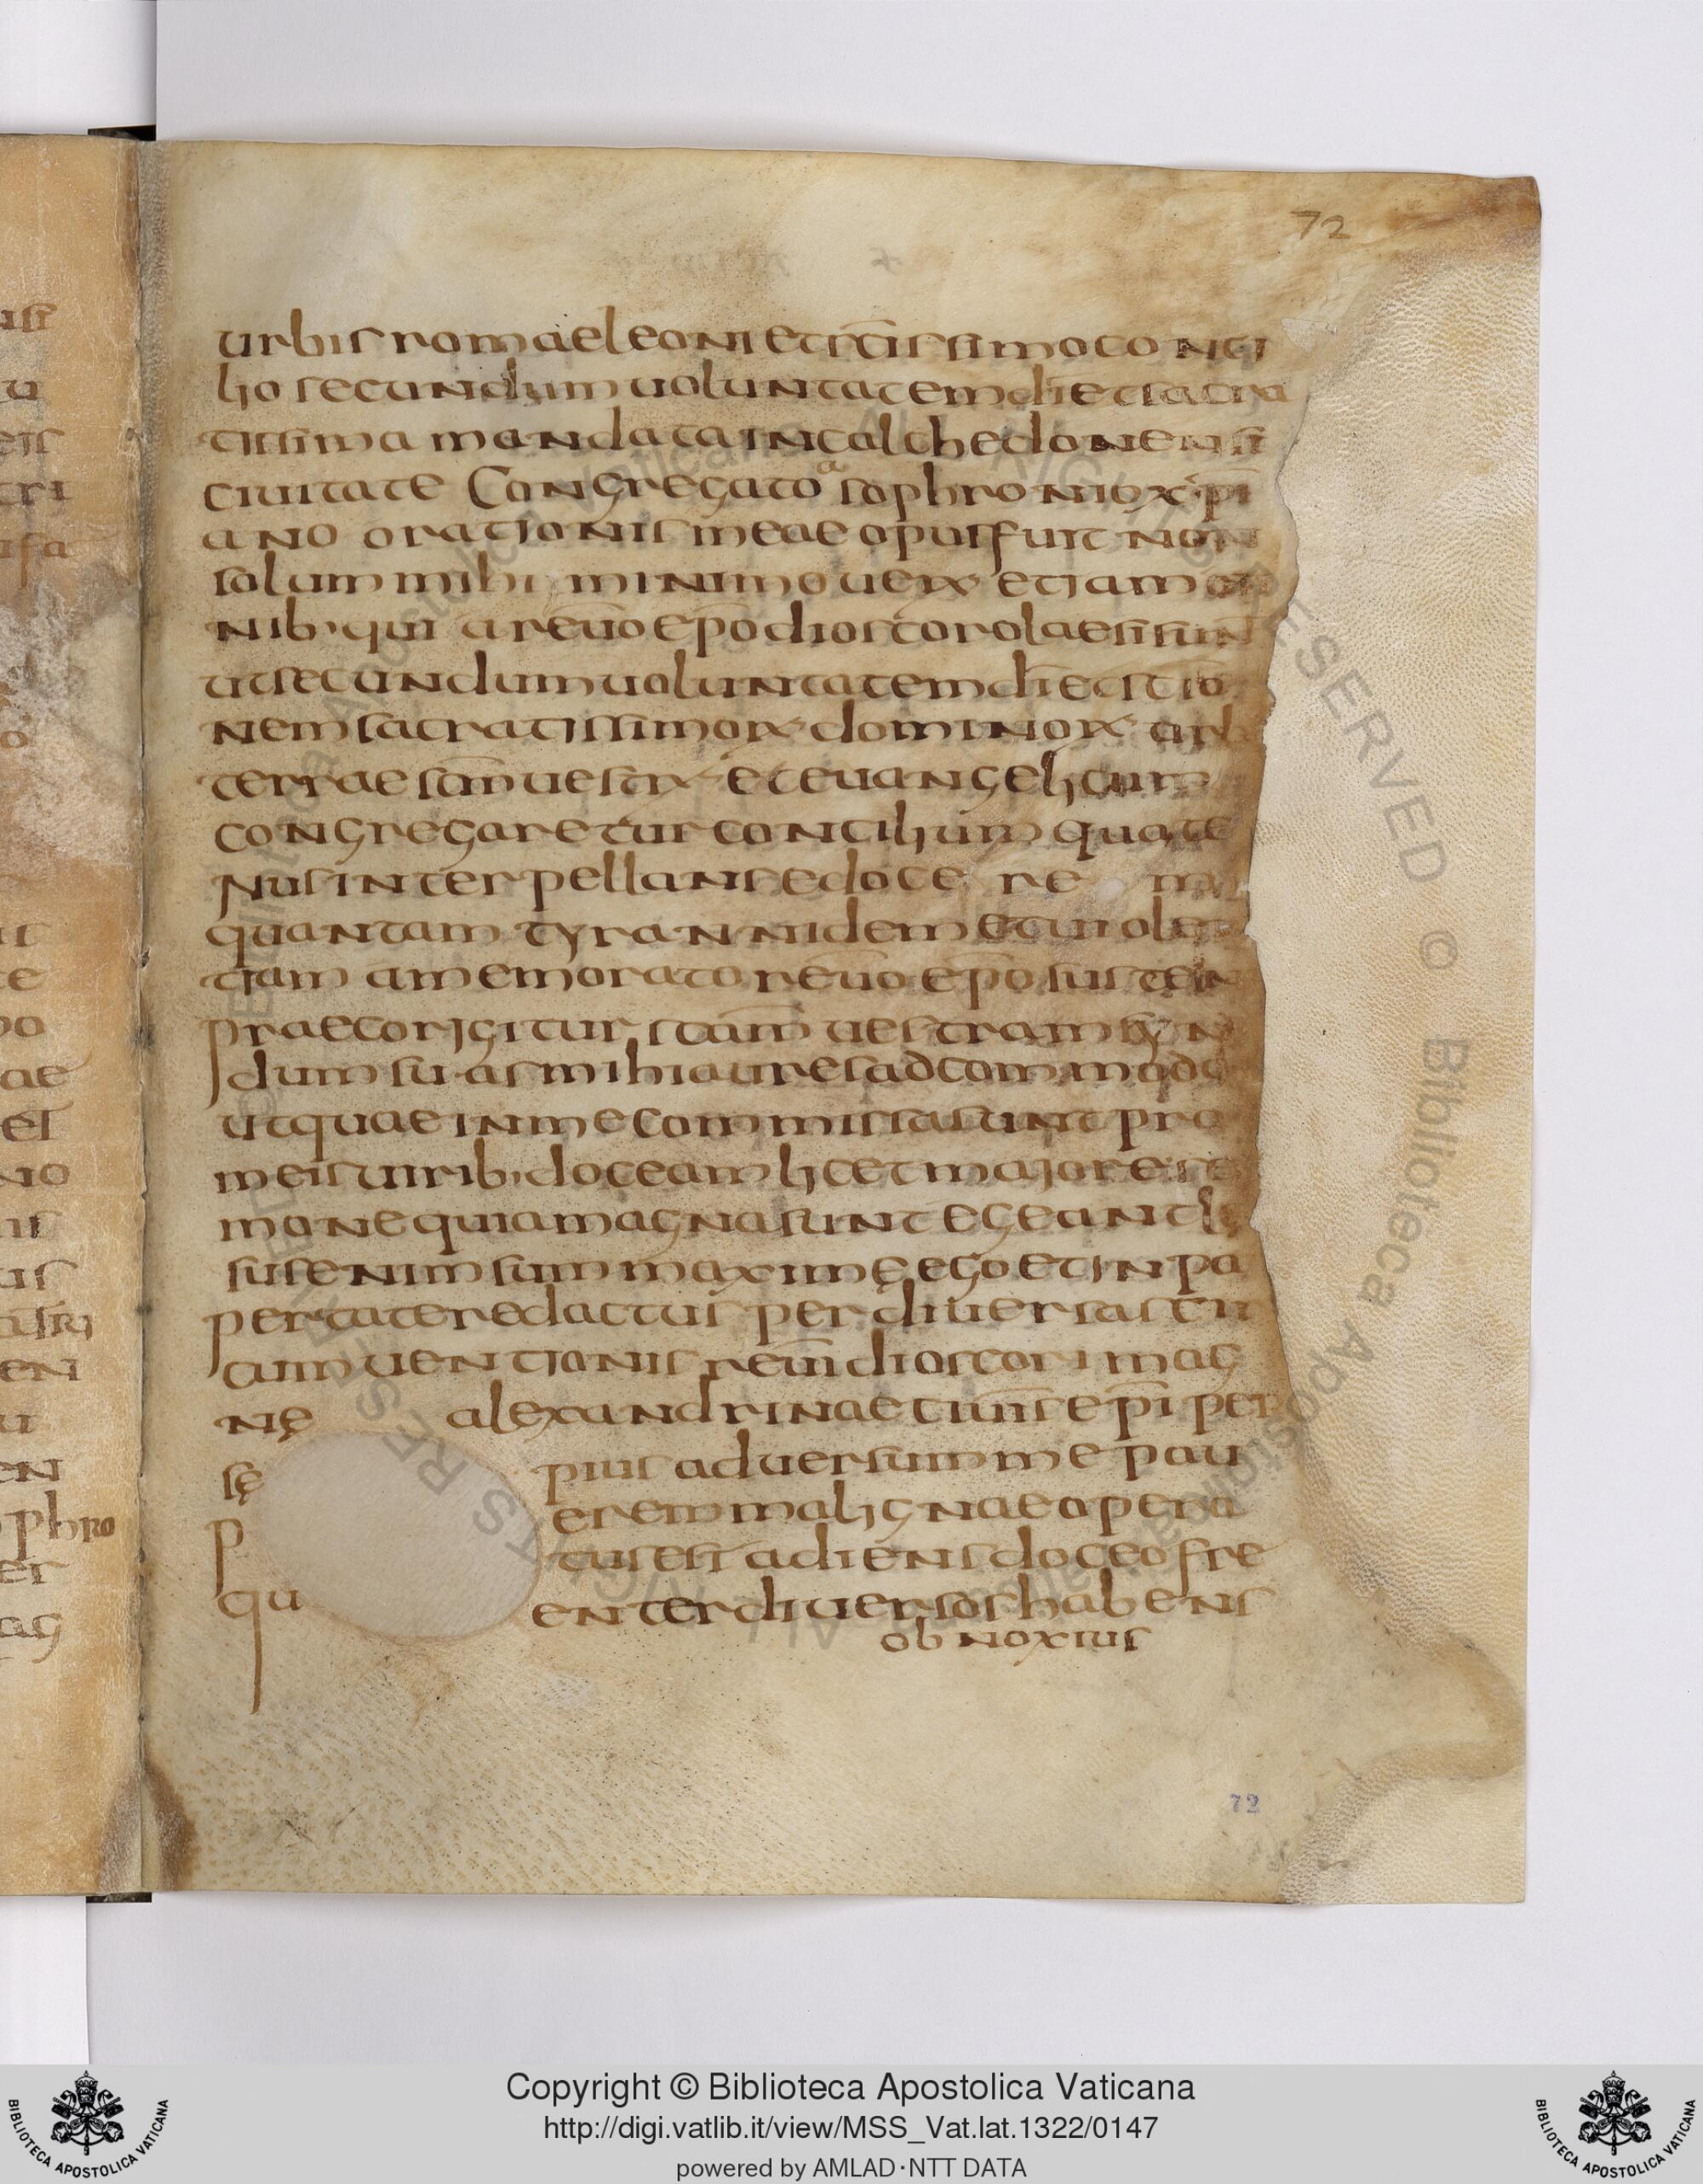 72
urbis romae leoni et sc̄issimo conci
lio secundum uoluntatem dī et sacra
tissima mandata in calchedonensi
ciuitate Congregato a sophronio xp̄i
ano orationis meae opus fuit non
solum mihi minimo uerx etiam om
nib· qui a reūo ep̄o dioscoro laesi sun
ut secundum uoluntatem dī et
nem sacratissimorx dominorx orb
terrae sc̄m uestrx et euangelicum
congregaretur concilium quate
nus interpellans edoce re
quantam tyrannidem et uiolen
tiam a memorato reūo ep̄o sustein
praecor igitur sc̄am uestram syn
dum suas mihi aures adcommodo
ut quae in me commissa sunt pro
meis uirib· doceam licet majore se
mone quia magna sunt egeant
sus enim sum maxime ego et in pa
pertate redactus per diuersas
cumuentionis reūm dioscori mag
nę alexandrinae ciuit̄s ep̄i per
sę pius aduersum me pau
p erem malignae opera
tus est adiens doceo fre
qu enter diuersos habens
obnoxius
72
Copyright © Biblioteca Apostolica Vaticana
http://digi.vatlib.it/view/MSS_Vat.lat.1322/0147
powered by AMLAD·NTT DATA
BIBLIOTECA APOSTOLICA VATICANA
BIBLIOTECA APOSTOLICA VATICANA